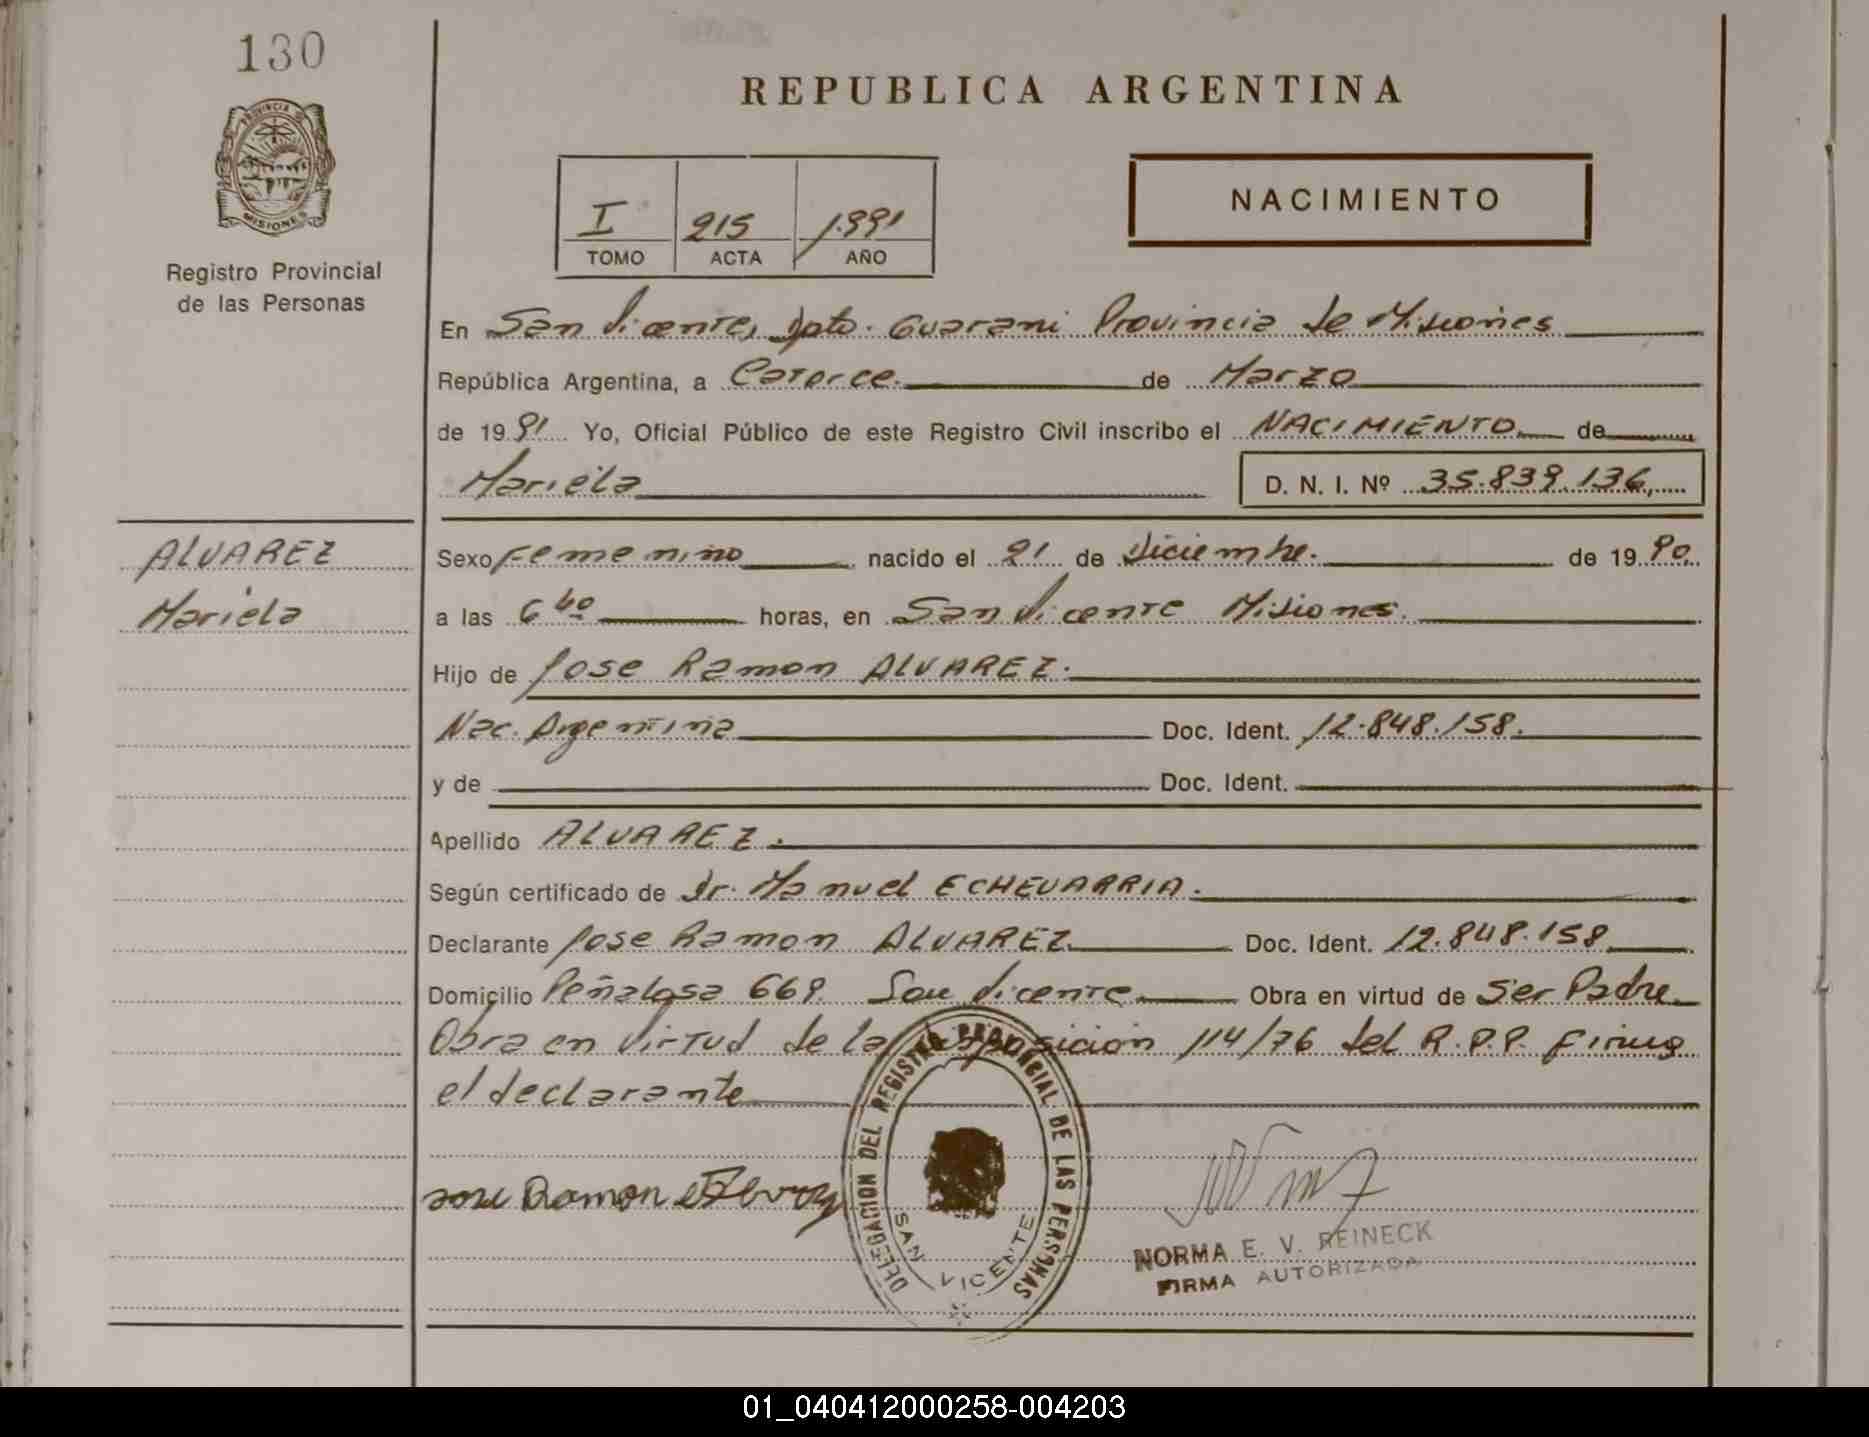 130
PROVINCIA DE
MISIONES
Registro Provincial
de las Personas
REPUBLICA ARGENTINA
I 215 1.991
TOMO ACTA AÑO
NACIMIENTO
En San Vicente, Dpto. Guarani Provincia de Misiones
República Argentina, a Catorce. de Marzo
de 1991 Yo, Oficial Público de este Registro Civil inscribo el NACIMIENTO de
Mariela D. N. I. Nº 35.839.136,
ALVAREZ
Mariela
Sexo Femenino nacido el 21 de Diciembre. de 1990.
a las 6 40 horas, en San Vicente Misiones.
Hijo de Jose Ramon ALVAREZ.
Nac. Argentina Doc. Ident. 12.848.158.
y de Doc. Ident.
Apellido ALVAREZ.
Según certificado de Dr. Manuel ECHEVARRIA.
Declarante Jose Ramon ALVAREZ Doc. Ident. 12.848.158
Domicilio Peñalosa 669 San Vicente Obra en virtud de Ser Padre
Obra en virtud de la Disposicion 114/76 del R.P.P. Firma
el declarante
DELEGACION DEL REGISTRO PROVINCIAL DE LAS PERSONAS
SAN VICENTE
Jose Ramon
NORMA E. V. REINECK
FIRMA AUTORIZADA
01_040412000258-004203